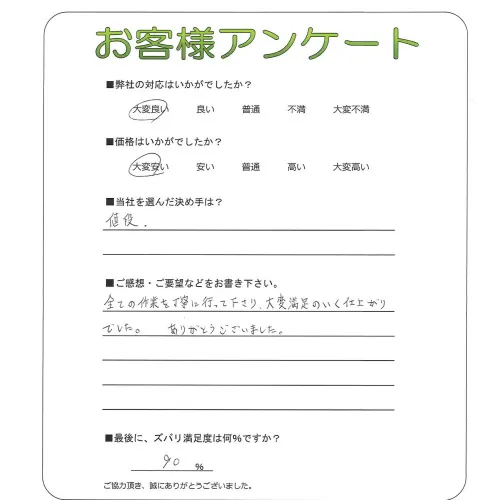 お客様アンケート
■弊社の対応はいかがでしたか？
大変良い 良い 普通 不満 大変不満
■価格はいかがでしたか？
大変安い 安い 普通 高い 大変高い
■当社を選んだ決め手は？
値段.
■ご感想・ご要望などをお書き下さい。
全ての作業を丁寧に行って下さり、大変満足のいく仕上がり
でした。 ありがとうございました。
■最後に、ズバリ満足度は何%ですか？
90 %
ご協力頂き、誠にありがとうございました。